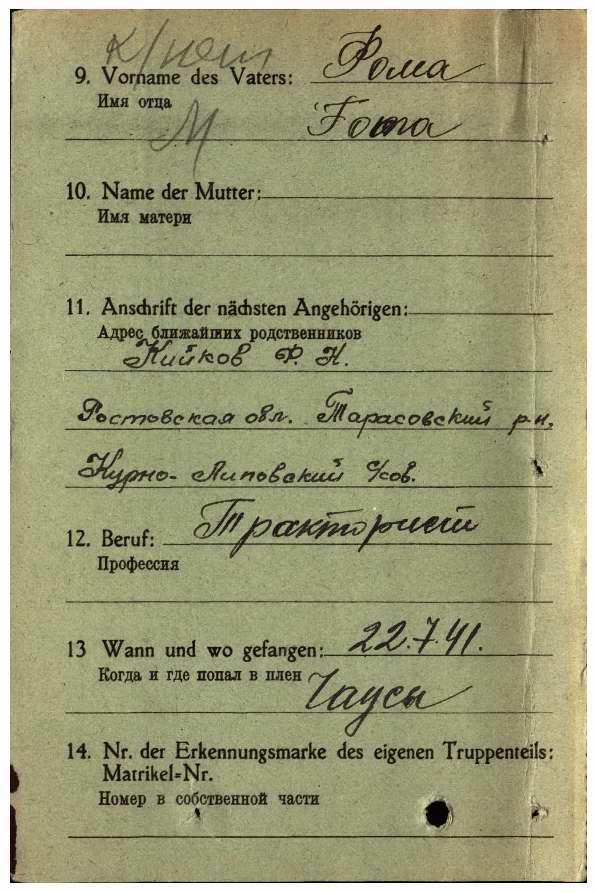 9. Vorname des Vaters: Фома
Имя отца
Foma
10. Name der Mutter:
Имя матери
11. Anschrift der nächsten Angehörigen:
Адрес ближайших родственников
Кийков Ф. К.
Ростовская обл. Тарасовский р-н.
Курно-Липовский с/сов.
12. Beruf: Тракторист
Профессия
13 Wann und wo gefangen: 22.7.41.
Когда и где попал в плен Чаусы
14. Nr. der Erkennungsmarke des eigenen Truppenteils:
Matrikel=Nr.
Номер в собственной части